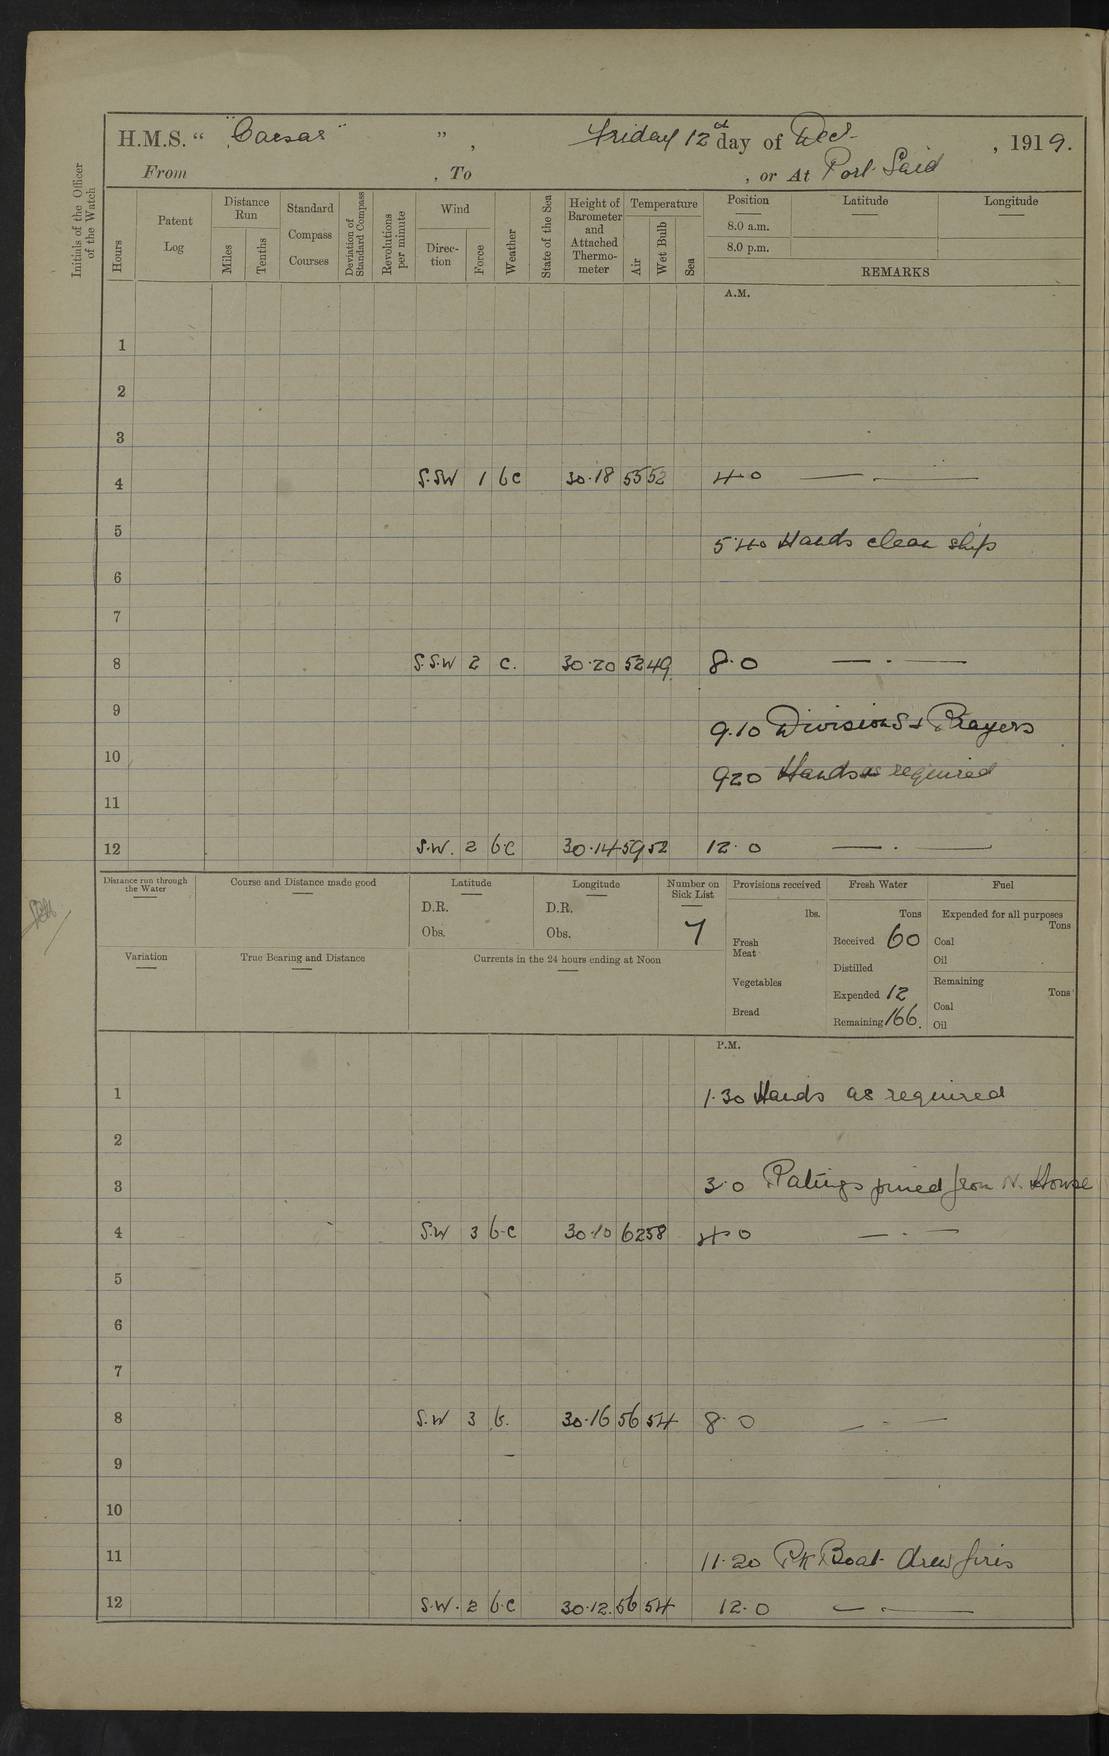 H.M.S. " "Caesar" ", Friday 12th day of Decr. , 1919.
From , To , or At Port Said
Initials of the Officer of the Watch
Hours
Patent Log
Distance Run
Miles
Tenths
Standard Compass Courses
Deviation of Standard Compass
Revolutions per minute
Wind
Direction
Force
Weather
State of the Sea
Height of Barometer and Attached Thermometer
Temperature
Air
Wet Bulb
Sea
Position Latitude Longitude
8.0 a.m.
8.0 p.m.
REMARKS
A.M.
1
2
3
4 S.SW 1 bc 30.18 55 52 4.0 — . —
5
5.40 Hands clean ship
6
7
8 S.S.W 2 c. 30.20 52 49 8.0 — . —
9
9.10 Divisions + Prayers
10
920 Hands as required
11
12 S.W. 2 b.c 30.14 59 52 12.0 — . —
Distance run through the Water
Course and Distance made good
Latitude
D.R.
Obs.
Longitude
D.R.
Obs.
Number on Sick List
7
Provisions received
lbs.
Fresh Meat
Vegetables
Bread
Fresh Water
Tons
Received 60
Distilled
Expended 12
Remaining 166.
Fuel
Expended for all purposes
Tons
Coal
Oil
Remaining
Tons
Coal
Oil
Variation
True Bearing and Distance
Currents in the 24 hours ending at Noon
P.M.
1 1.30 Hands as required
2
3 3.0 Ratings joined from N. House
4 S.W 3 b.c 30.10 62 58 4.0 — . —
5
6
7
8 S.W 3 b. 30.16 56 54 8.0 — . —
9
10
11 11.20 Pkt Boat drew fires
12 S.W. 2 b.c 30.12. 56 54 12.0 — . —